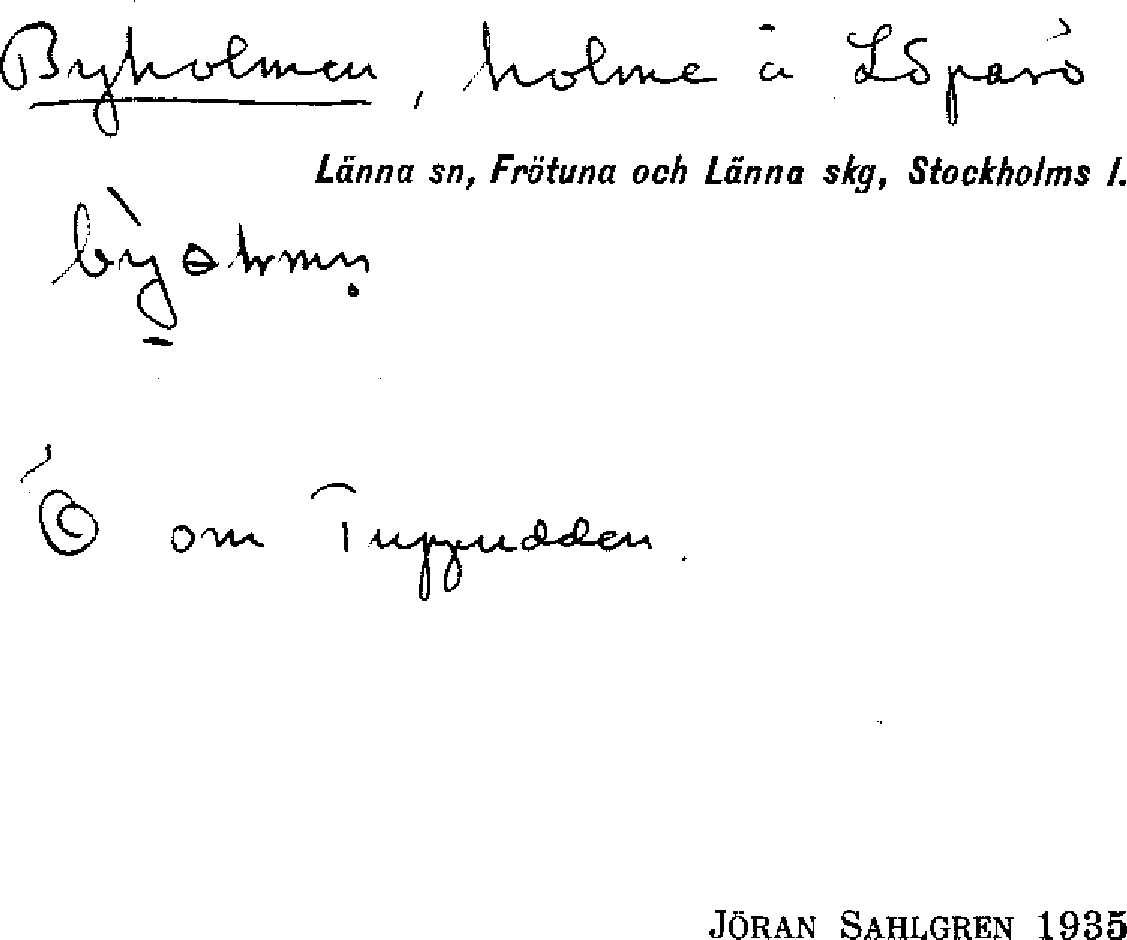 Byholmen, holme å Löparö
Länna sn, Frötuna och Länna skg, Stockholms l.
Ö om Tuppudden.
JÖRAN SAHLGREN 1935